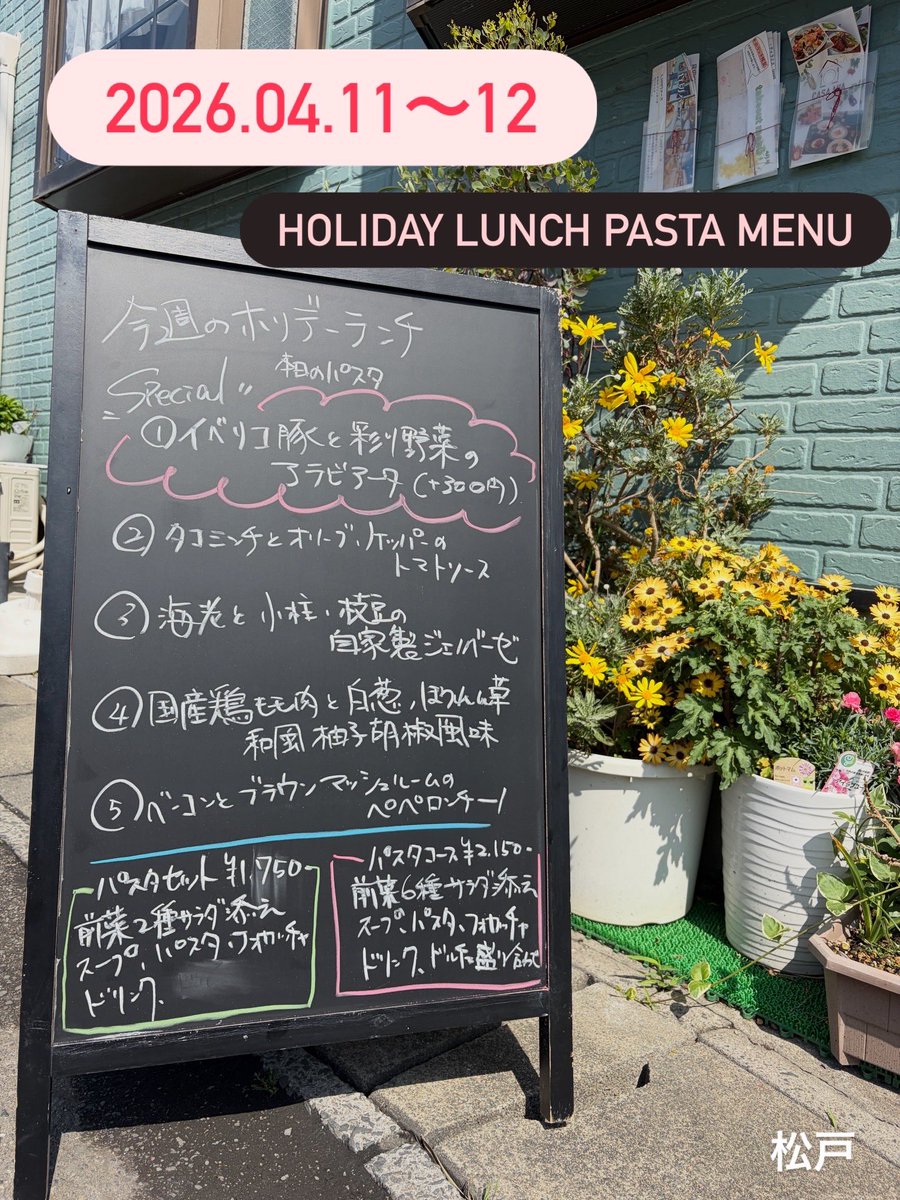 2026.04.11〜12
HOLIDAY LUNCH PASTA MENU
今週のホリデーランチ
"Special" 本日のパスタ
①イベリコ豚と彩り野菜の
アラビアータ(+300円)
②タコミンチとオリーブ、ケッパーの
トマトソース
③海老と小柱・枝豆の
自家製ジェノバーゼ
④国産鶏もも肉と白葱、ほうれん草
和風柚子胡椒風味
⑤ベーコンとブラウンマッシュルームの
ペペロンチーノ
パスタセット¥1,750-
前菜2種サラダ添え
スープ、パスタ、フォカッチャ
ドリンク、
パスタコース¥2,150-
前菜6種サラダ添え
スープ、パスタ、フォカッチャ
ドリンク、ドルチェ盛り合わせ
松戸